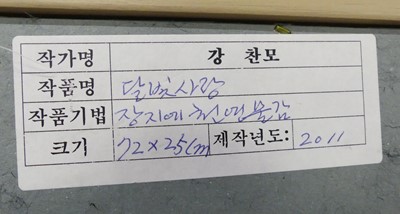 작가명 강 찬모
작품명 달빛사랑
작품기법 장지에 천연물감
크기 72×25cm 제작년도: 2011